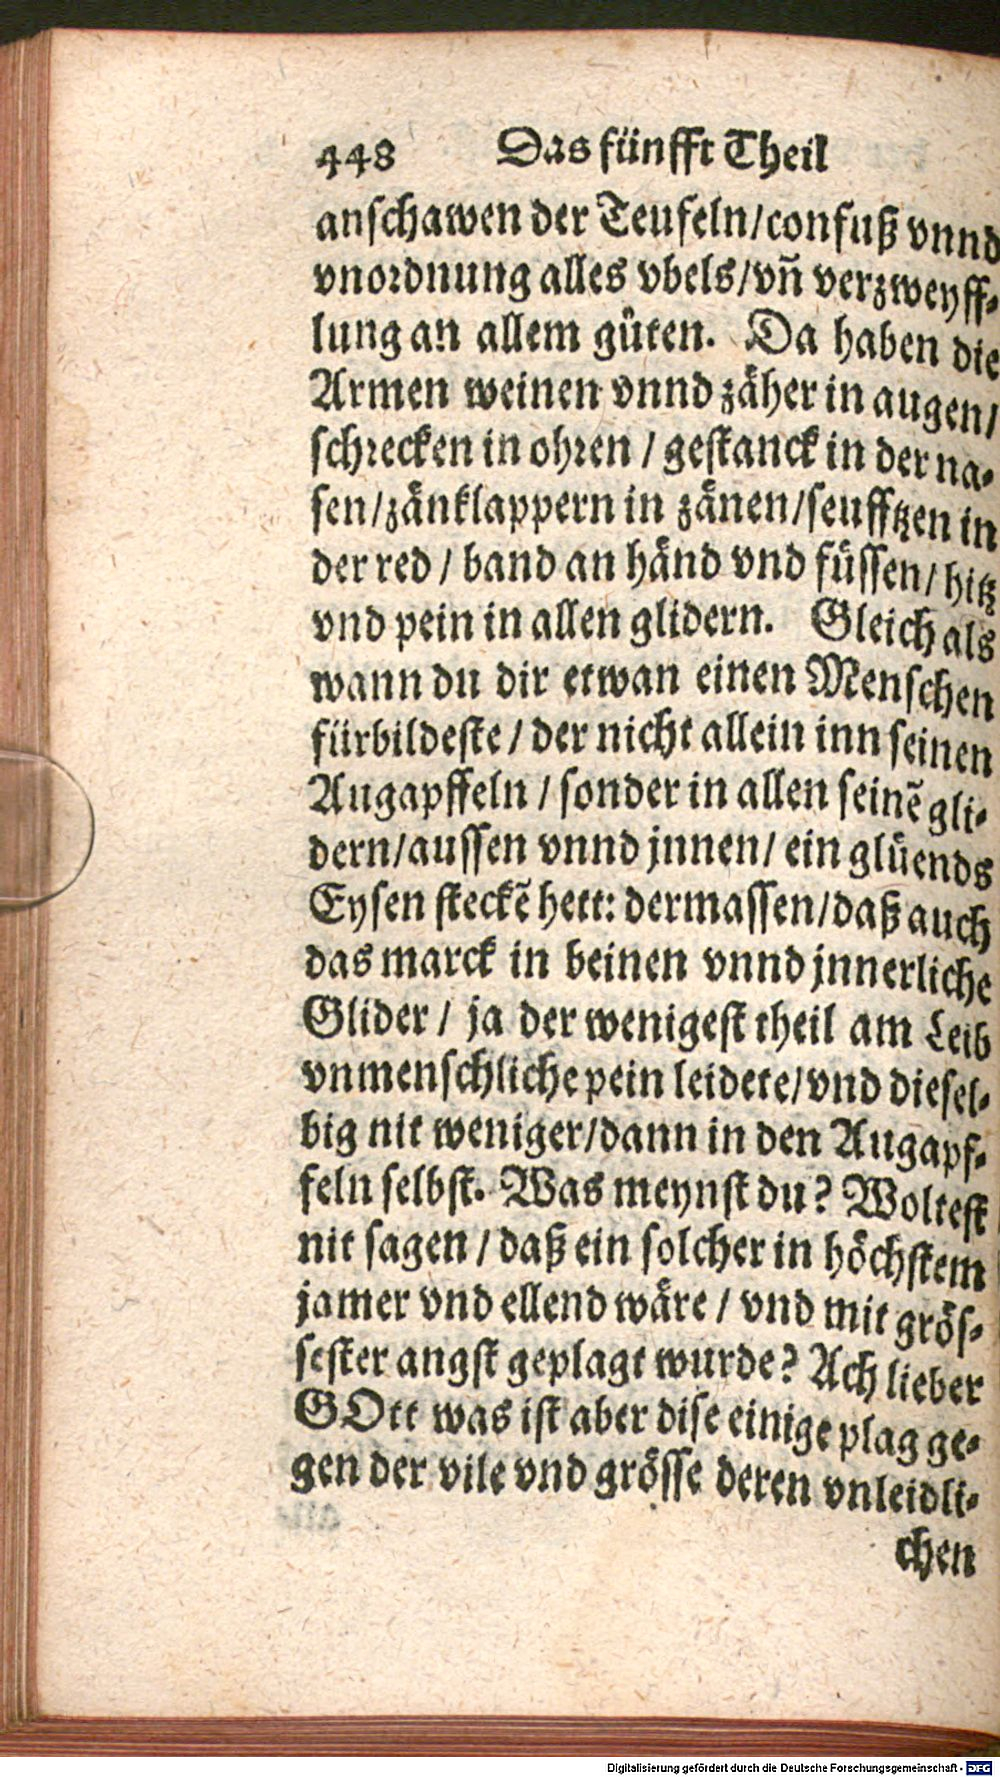 448 Das fünfft Theil
anschawen der Teufeln/confuß vnnd
vnordnung alles vbels/vn̄ verzweyff-
lung an allem gůten. Da haben die
Armen weinen vnnd zäher in augen/
schrecken in ohren / gestanck in der na-
sen/zänklappern in zänen/seufftzen in
der red / band an händ vnd füssen/ hitz
vnd pein in allen glidern. Gleich als
wann du dir etwan einen Menschen
fürbildeste / der nicht allein inn seinen
Augapffeln / sonder in allen seinē gli-
dern/aussen vnnd jnnen/ ein glüends
Eysen steckē hett: dermassen/daß auch
das marck in beinen vnnd jnnerliche
Glider / ja der wenigest theil am Leib
vnmenschliche pein leidete/vnd diesel-
big nit weniger/dann in den Augapf-
feln selbst. Was meynst du? Woltest
nit sagen / daß ein solcher in höchstem
jamer vnd ellend wäre / vnd mit grös-
sester angst geplagt wurde? Ach lieber
GOtt was ist aber dise einige plag ge-
gen der vile vnd grösse deren vnleidli-
chen
Digitalisierung gefördert durch die Deutsche Forschungsgemeinschaft - DFG